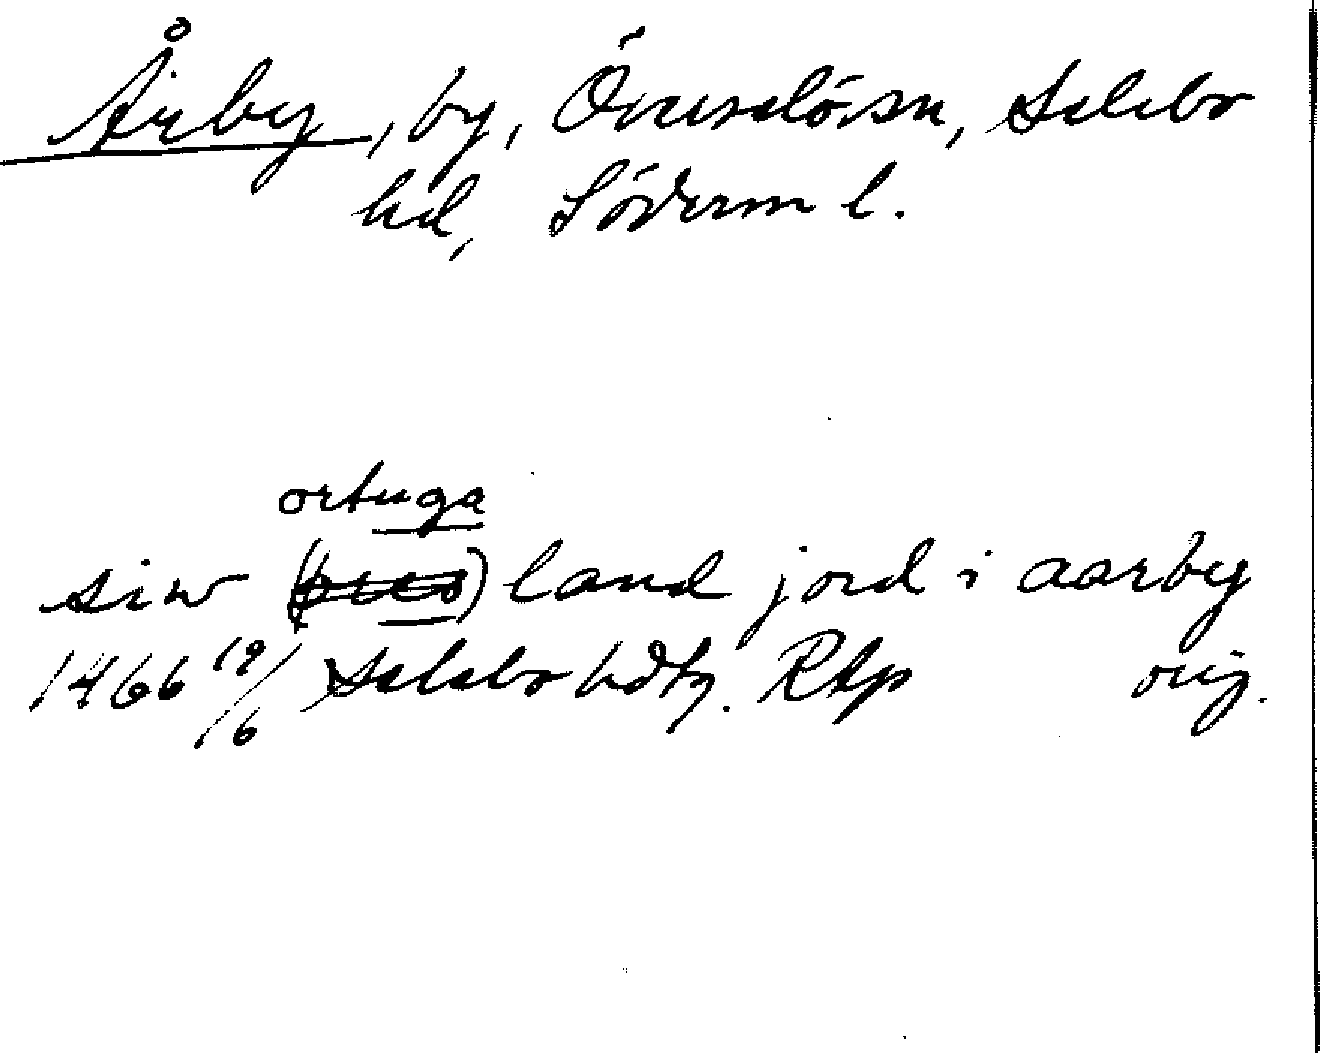 Årby, by, Överselö sn, Selebo
hd, Söderm l.
ortuga
siw land jord i aarby
1466 19/6 Selebo hdtg. Rap orig.